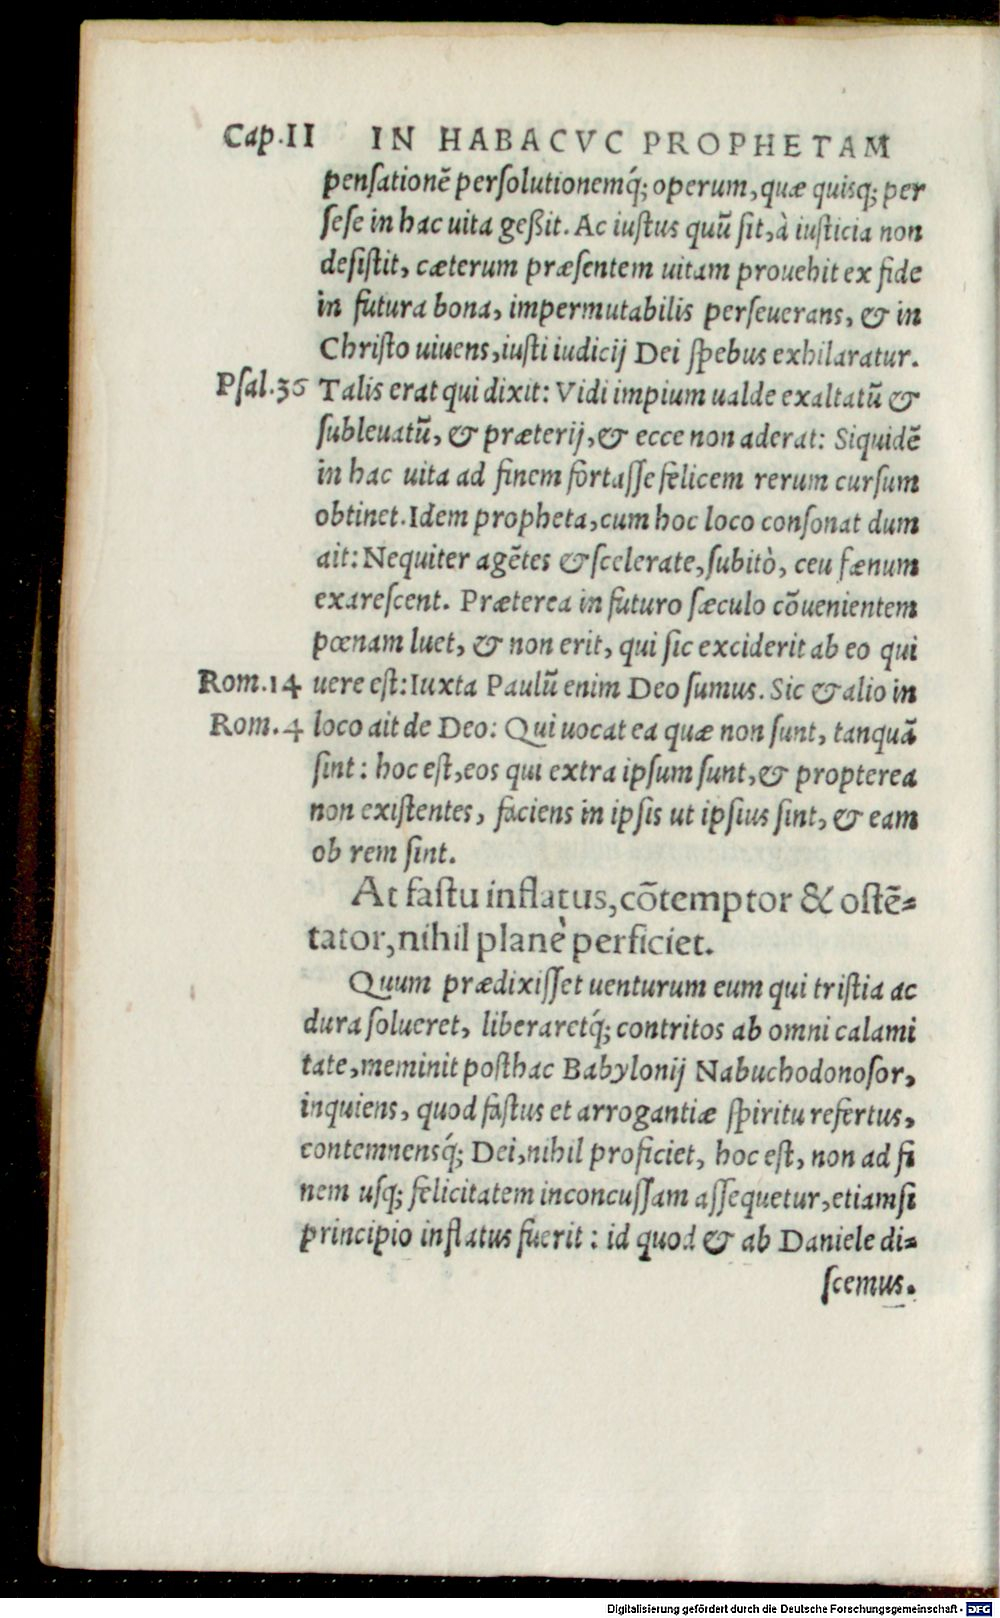 Cap.II IN HABACVC PROPHETAM
penſationẽ perſolutionemq́; operum, quæ quisq; per
ſeſe in hac uita geßit. Ac iuſtus quũ ſit, à iuſticia non
deſiſtit, cæterum præſentem uitam prouehit ex fide
in futura bona, impermutabilis perſeuerans, & in
Chriſto uiuens, iuſti iudicij Dei ſpebus exhilaratur.
Pſal.36 Talis erat qui dixit: Vidi impium ualde exaltatũ &
ſubleuatũ, & præterij, & ecce non aderat: Siquidẽ
in hac uita ad finem fortaſſe felicem rerum curſum
obtinet. Idem propheta, cum hoc loco conſonat dum
ait: Nequiter agẽtes & ſcelerate, ſubitò, ceu fænum
exareſcent. Præterea in futuro ſæculo cõuenientem
pœnam luet, & non erit, qui ſic exciderit ab eo qui
Rom.14 uere eſt: Iuxta Paulũ enim Deo ſumus. Sic & alio in
Rom.4 loco ait de Deo: Qui uocat ea quæ non ſunt, tanquã
ſint: hoc eſt, eos qui extra ipſum ſunt, & propterea
non exiſtentes, faciens in ipſis ut ipſius ſint, & eam
ob rem ſint.
At faſtu inflatus, cõtemptor & oſtẽ-
tator, nihil planè perficiet.
Quum prædixiſſet uenturum eum qui triſtia ac
dura ſolueret, liberaretq́; contritos ab omni calami
tate, meminit poſthac Babylonij Nabuchodonoſor,
inquiens, quod faſtus et arrogantiæ ſpiritu refertus,
contemnensq́; Dei, nihil proficiet, hoc eſt, non ad fi
nem uſq; felicitatem inconcuſſam aſſequetur, etiamſi
principio inflatus fuerit: id quod & ab Daniele di-
ſcemus.
Digitalisierung gefördert durch die Deutsche Forschungsgemeinschaft - DFG